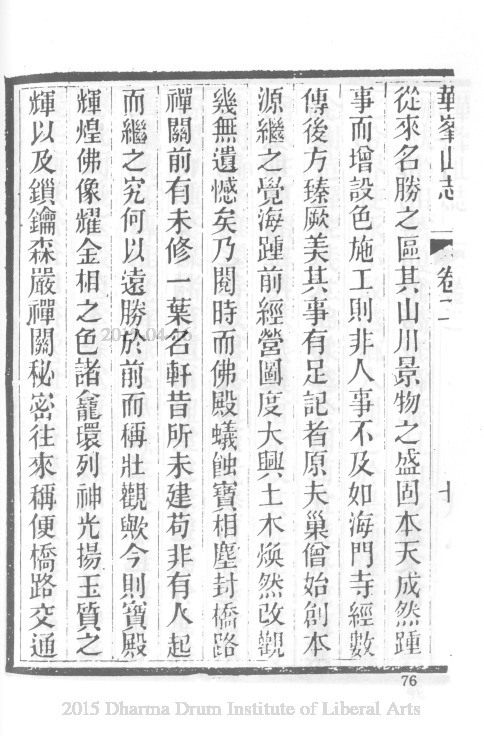 華峯山志 卷二 十
從來名勝之區其山川景物之盛固本天成然踵
事而增設色施工則非人事不及如海門寺經數
傳後方臻厥美其事有足記者原夫巢僧始創本
源繼之覺海踵前經營圖度大興土木煥然改觀
幾無遺憾矣乃閱時而佛殿蟻蝕寶相塵封橋路
禪關前有未修一葉名軒昔所未建苟非有人起
而繼之究何以遠勝於前而稱壯觀歟今則寶殿
輝煌佛像耀金相之色諸龕環列神光揚玉質之
輝以及鎖鑰森嚴禪關秘密往來稱便橋路交通
76
2015 Dharma Drum Institute of Liberal Arts